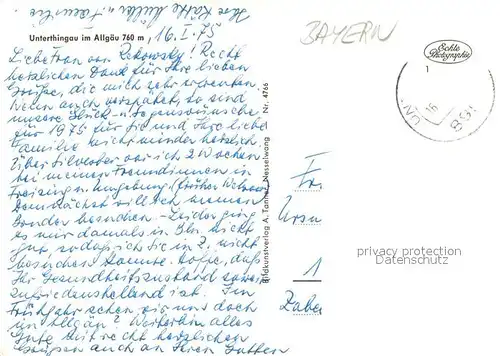 Ihre Käthe Müller u. Familie
Unterthingau im Allgäu 760 m, 16. I. 75
BAYERN
Echte Photographie
Liebe Frau von Rekowsky! Recht
herzlichen Dank für Ihre lieben
Grüße, die mich sehr erfreuten.
Wenn auch verspätet, so sind
unsere Glück- u. Segenswünsche
für 1975 für Sie und Ihre liebe
Familie nicht minder herzlich
Über Silvester war ich 2 Wochen
bei meinen Freundinnen in
Freising u. Umgebung (früher
Demnächst will ich meinen
Bruder besuchen - Leider ging
es mir damals in Bln. nicht
gut, sodaß ich Sie in Z. nicht
besuchen konnte. Hoffe, daß
Ihr Gesundheitszustand soweit
zufriedenstellend ist. Im
Frühjahr sehen wir uns doch
im Allgäu? Weiterhin alles
Gute mit recht herzlichen
Grüßen auch an Ihren Gatten
Bildkunstverlag A. Tanner, Nesselwang Nr. 4766
Fr
Ursu
1
Zabe
privacy protection
Datenschutz